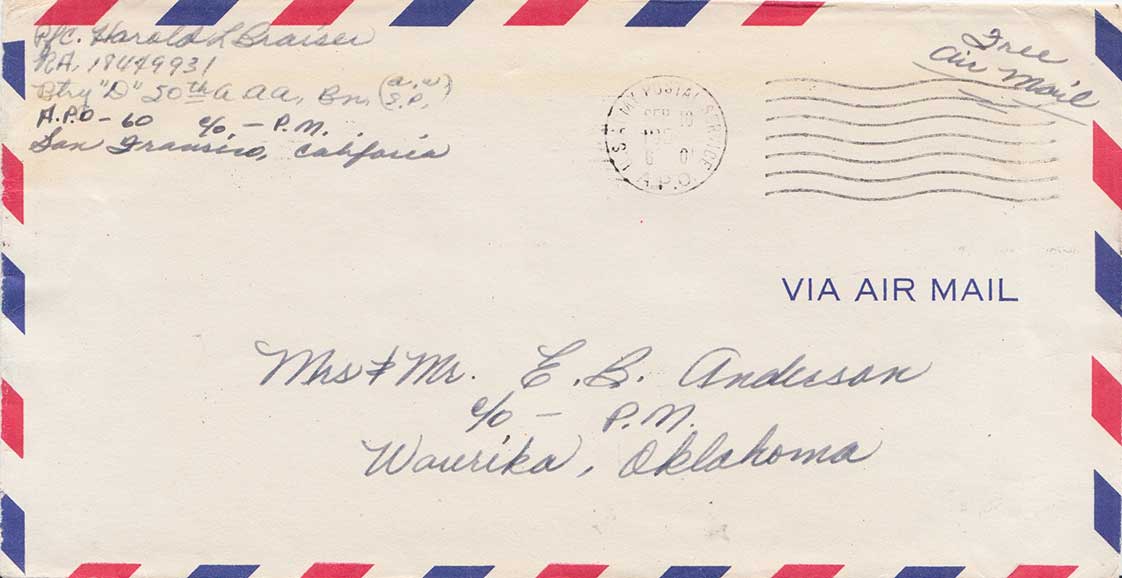 Pfc. Harold L Braiser
RA. 18479931
Btry "D" 50th a aa, Bn, (a.w) S.P.
A.P.O - 60 c/o, - P.M.
San Fransico, Califoria
Free
Air Mail
U.S. ARMY POSTAL SERVICE
SEP
A.P.O.
VIA AIR MAIL
Mrs & Mr. E. B. Anderson
c/o - P.M.
Waurika, Oklahoma